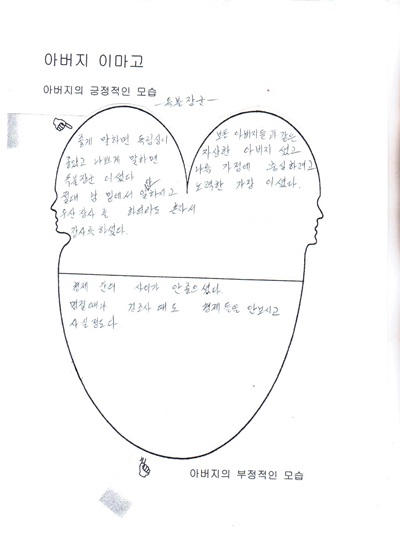 아버지 이마고
아버지의 긍정적인 모습
-독불장군-
좋게 말하면 독립심이
좋았고 나쁘게 말하면
독불장군 이셨다
절대 남 밑에서 일하시고
우산장사를 하더라도 혼자서
장사를 하셨다.
보통 아버지들과 같은
자상한 아버지 셨고
나름 가정에 충실하려고
노력한 가장 이셨다.
형제 간의 사이가 안좋으셨다.
명절때나 경조사 때도 형제들을 안보시고
사실정도다
아버지의 부정적인 모습